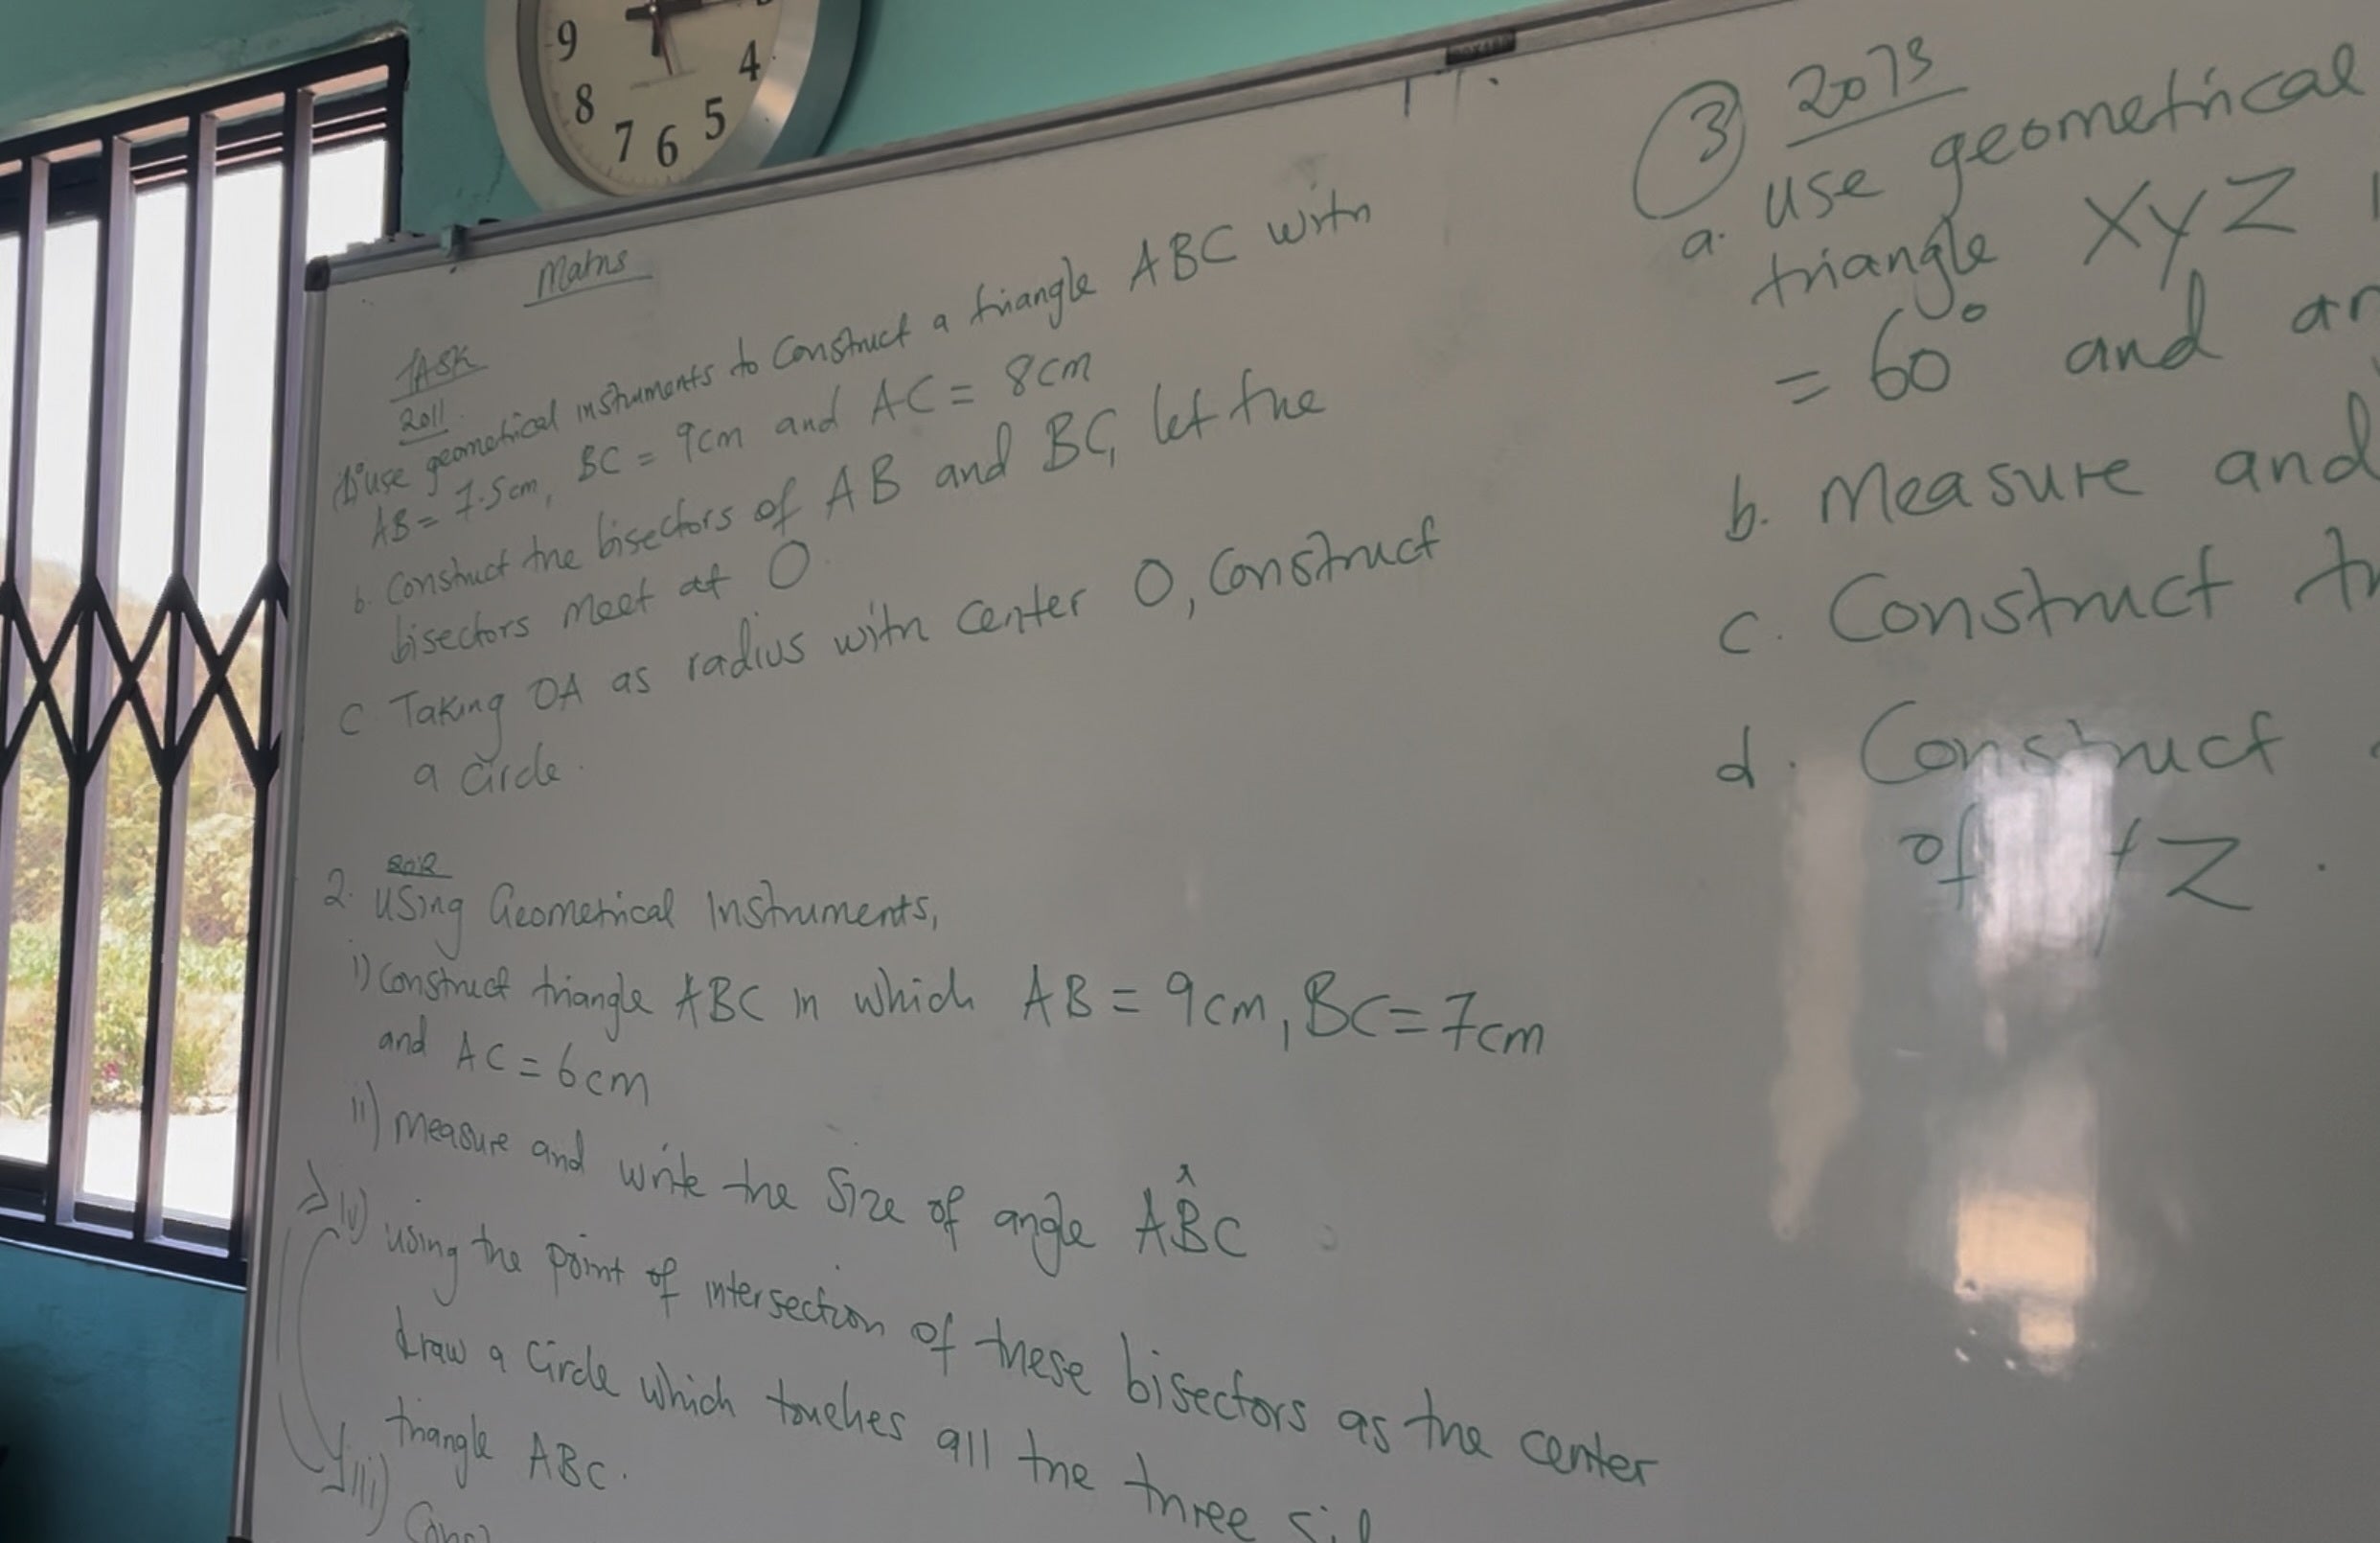 9
8
7
6
5
4
Maths
TASK
2011
use geometrical instruments to construct a triangle ABC with
AB = 7.5cm, BC = 9cm and AC = 8cm
b. Construct the bisectors of AB and BC, let the
bisectors meet at O.
C Taking OA as radius with center O, construct
a circle.
2012
2. Using Geometrical Instruments,
i) construct triangle ABC in which AB = 9cm, BC = 7cm
and AC = 6cm
ii) measure and write the size of angle AB̂C
iv) using the point of intersection of these bisectors as the center
draw a circle which touches all the three
triangle ABC.
iii)
3 2013
a. use geometrical
triangle XYZ
= 60° and
b. Measure and
c. Construct
d. Construct
of YZ.